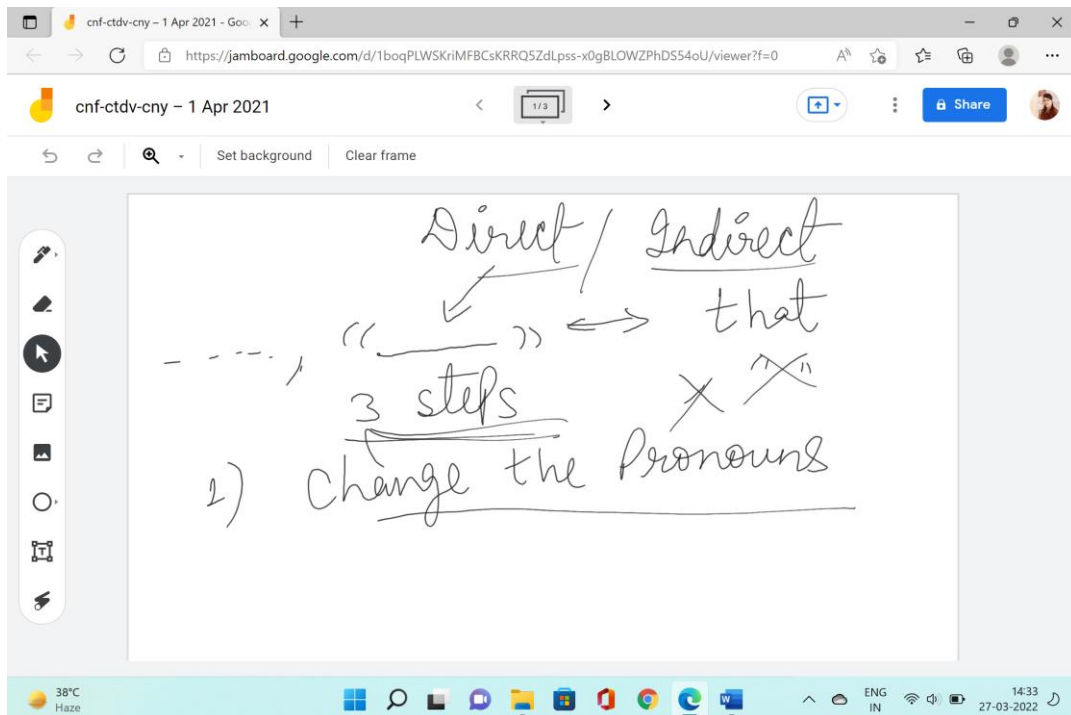 cnf-ctdv-cny – 1 Apr 2021 - Goo
https://jamboard.google.com/d/1boqPLWSKriMFBCsKRRQ5ZdLpss-x0gBLOWZPhDS54oU/viewer?f=0
cnf-ctdv-cny – 1 Apr 2021
1/3
Share
Set background
Clear frame
Direct / Indirect
- - - - - , “ ___ ” ↔ that
3 steps X " "
1) Change the Pronouns
38°C
Haze
ENG
IN
14:33
27-03-2022